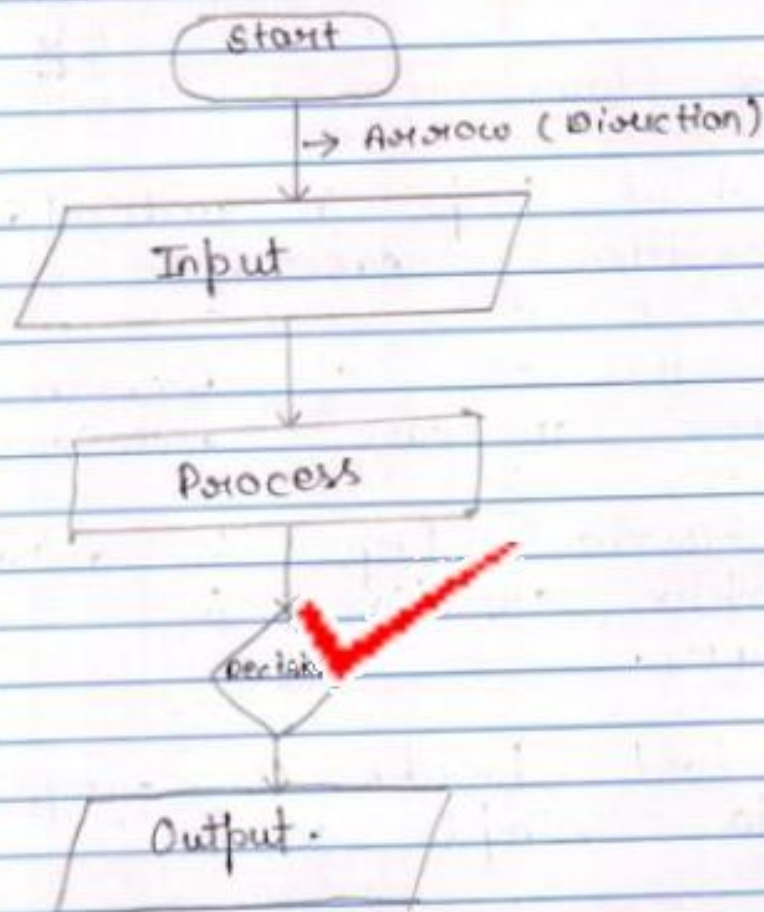 Start
→ Arrow (Direction)
Input
Process
Output.